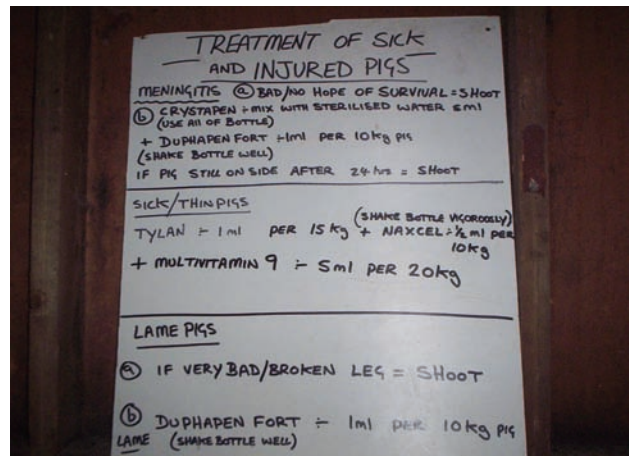 TREATMENT OF SICK
AND INJURED PIGS
MENINGITIS ⓐ BAD/NO HOPE OF SURVIVAL = SHOOT
ⓑ CRYSTAPEN ÷ MIX WITH STERILISED WATER 5ml
(USE All OF BOTTLE)
+ DUPHAPEN FORT ÷ 1ml PER 10kg PIG
(SHAKE BOTTLE WELL)
IF PIG STILL ON SIDE AFTER 24 hrs = SHOOT
SICK/THIN PIGS
(SHAKE BOTTLE VIGOROUSLY)
TYLAN ÷ 1ml PER 15kg + NAXCEL ÷ ½ ml PER
10kg
+ MULTIVITAMIN 9 ÷ 5ml PER 20kg
LAME PIGS
ⓐ IF VERY BAD/BROKEN LEG = SHOOT
ⓑ DUPHAPEN FORT ÷ 1ml PER 10kg PIG
LAME (SHAKE BOTTLE WELL)